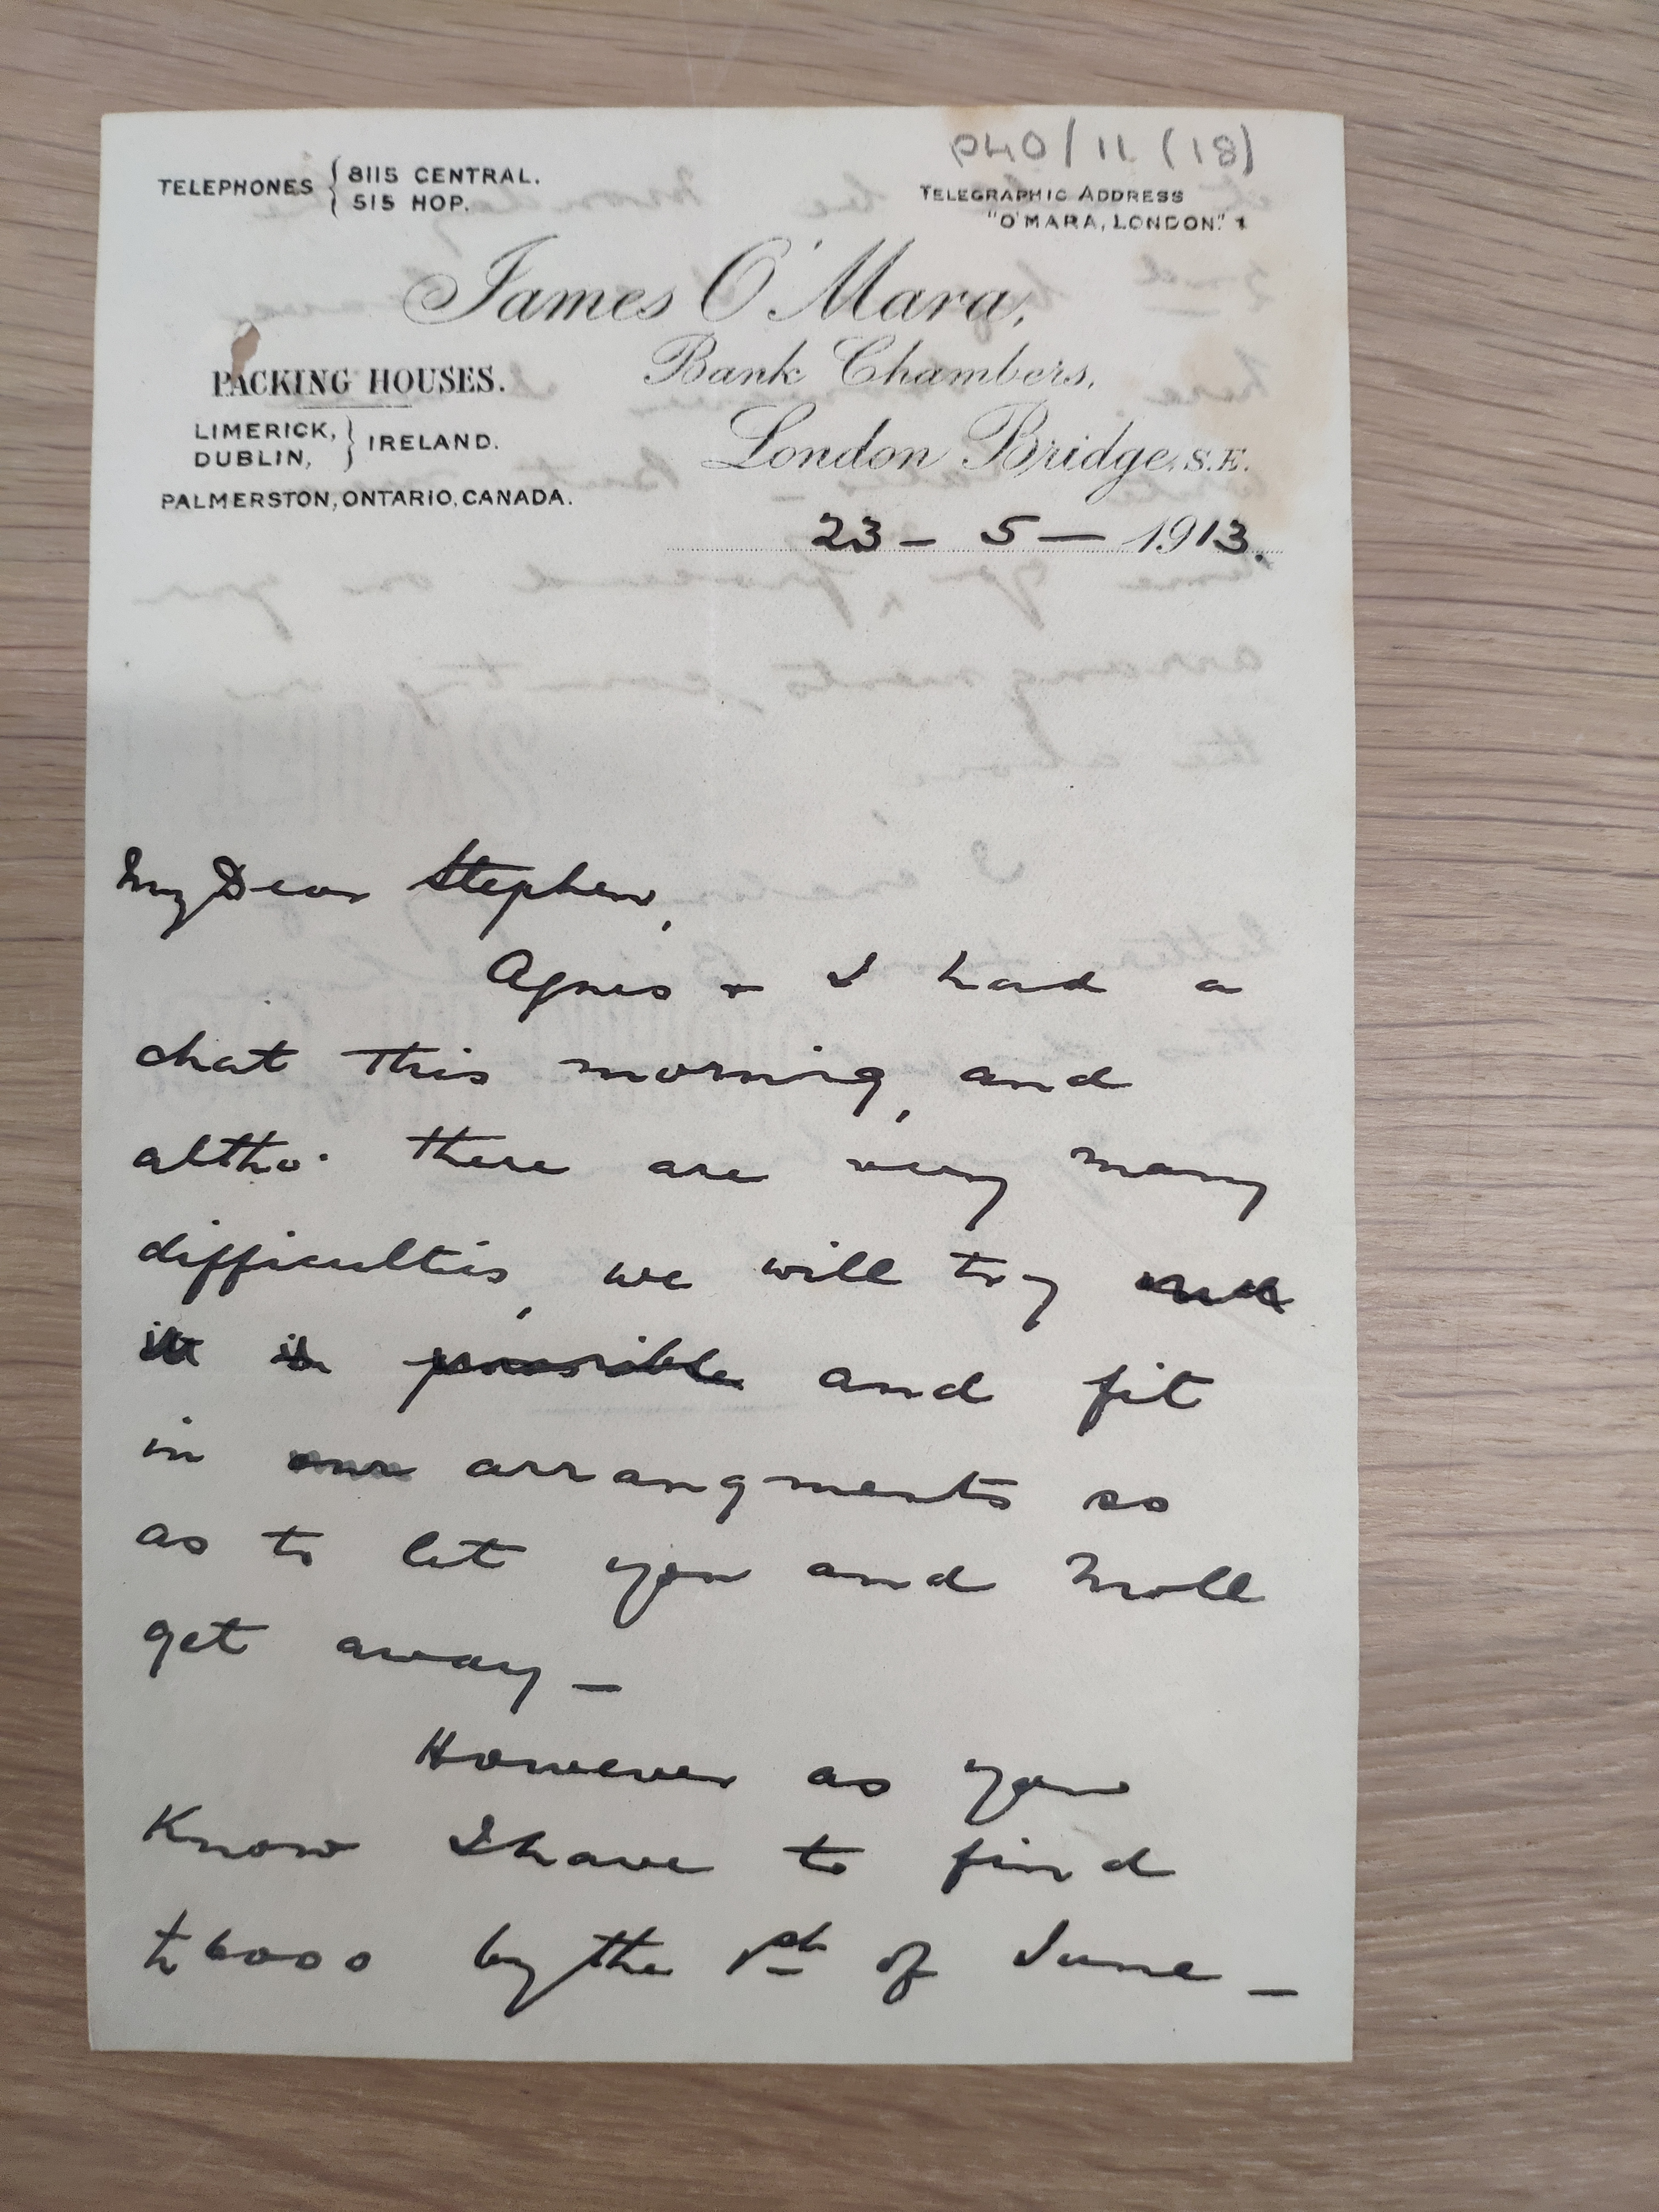 P40/11 (18)
TELEPHONES { 8115 CENTRAL.
515 HOP.
TELEGRAPHIC ADDRESS
"O'MARA, LONDON."
James O'Mara,
PACKING HOUSES.
Bank Chambers,
LIMERICK,
DUBLIN, } IRELAND.
London Bridge, S.E.
PALMERSTON, ONTARIO, CANADA.
23 – 5 – 1913.
My Dear Stephen,
Agnes & I had a
chat this morning, and
altho' there are very many
difficulties, we will try
it is possible and fit
in our arrangments so
as to let you and Moll
get away –
However as you
Know I have to find
£6000 by the 1st of June –